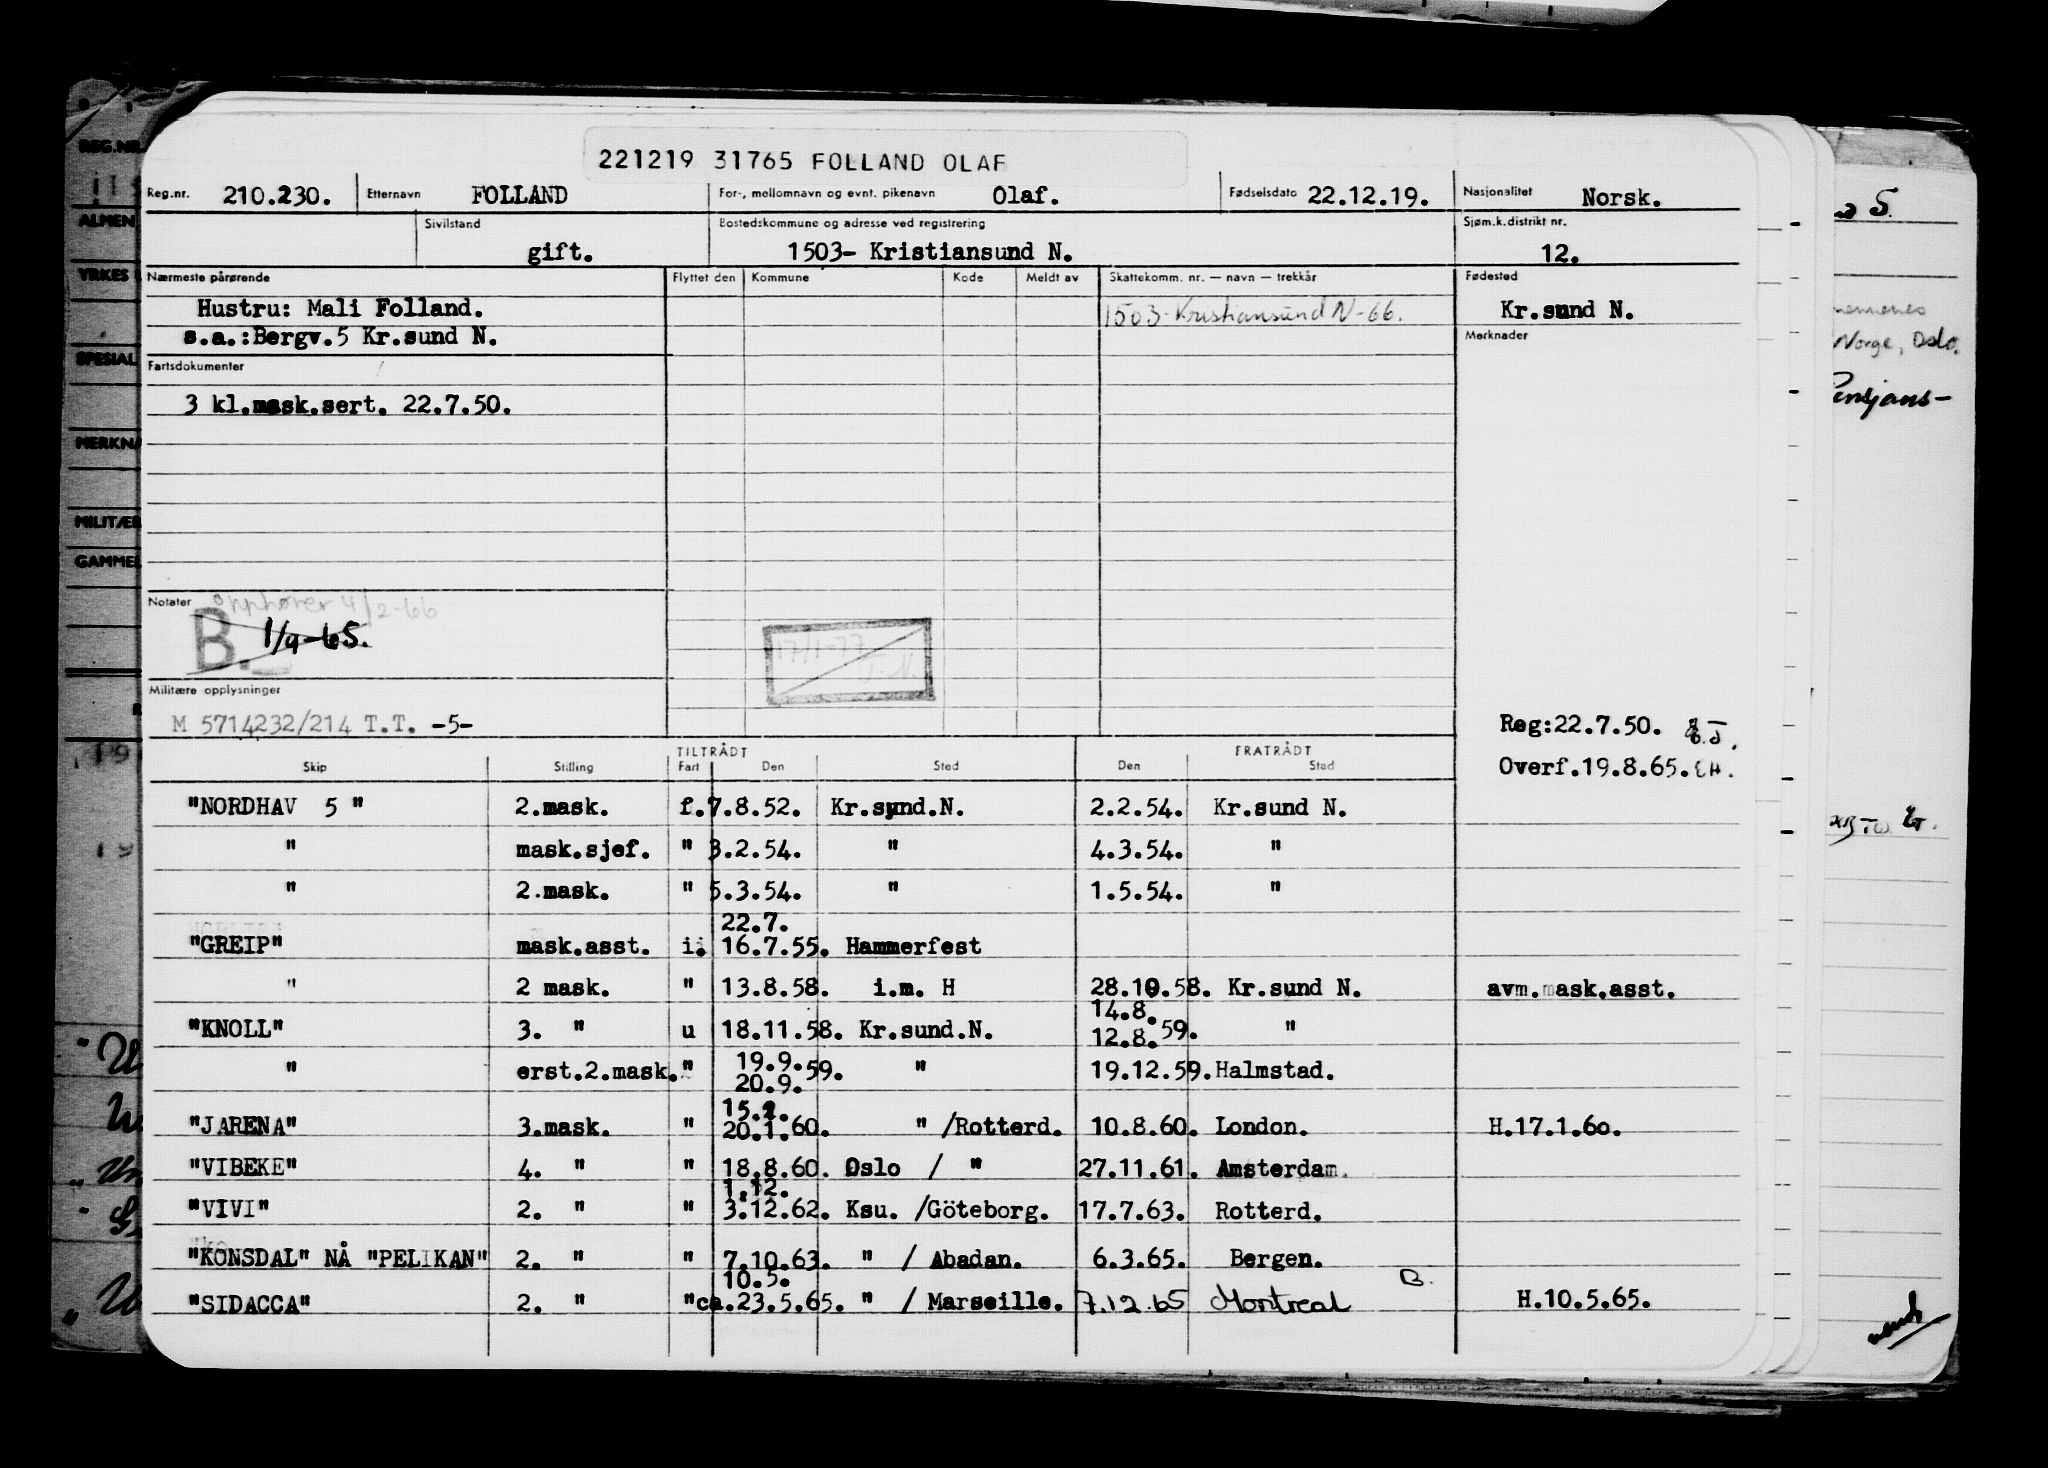 221219 31765 FOLLAND OLAF
Reg.nr. 210.230. Etternavn FOLLAND For-, mellomnavn og evnt. pikenavn Olaf. Fødselsdato 22.12.19. Nasjonalitet Norsk.
Sivilstand gift. Bostedskommune og adresse ved registrering 1503- Kristiansund N. Sjøm.k.distrikt nr. 12.
Nærmeste pårørende Flyttet den Kommune Kode Meldt av Skattekomm. nr. — navn — trekkår Fødested
Hustru: Mali Folland. 1503-Kristiansund N-66. Kr.sund N.
s.a.:Bergv.5 Kr.sund N. Merknader
Fartsdokumenter
3 kl.mask.sert. 22.7.50.
Notater opphører 4/2-66
B. 1/9-65.
17/1-77
Militære opplysninger
M 5714232/214 T.T. -5-
Reg:22.7.50. E.J.
Overf.19.8.65. EH.
TILTRÅDT FRATRÅDT
Skip Stilling Fart Den Sted Den Sted
"NORDHAV 5 " 2.mask. f.7.8.52. Kr.sund.N. 2.2.54. Kr.sund N.
" mask.sjef. " 3.2.54. " 4.3.54. "
" 2.mask. " 5.3.54. " 1.5.54. "
22.7.
"GREIP" mask.asst. i. 16.7.55. Hammerfest
" 2 mask. " 13.8.58. i.m. H 28.10.58. Kr.sund N. avm.mask.asst.
14.8.
"KNOLL" 3. " u 18.11.58. Kr.sund.N. 12.8.59. "
19.9.
" erst.2.mask." 20.9.59. " 19.12.59.Halmstad.
15.1.
"JARENA" 3.mask. " 20.1.60. " /Rotterd. 10.8.60. London. H.17.1.60.
"VIBEKE" 4. " " 18.8.60. Oslo / " 27.11.61. Amsterdam.
1.12.
"VIVI" 2. " " 3.12.62. Ksu. /Göteborg. 17.7.63. Rotterd.
"KONSDAL" NÅ "PELIKAN" 2. " " 7.10.63. " / Abadan. 6.3.65. Bergen.
10.5. B.
"SIDACCA" 2. " "ca.23.5.65. " / Marseille. 7.12.65 Montreal H.10.5.65.
REG.NR.
ALMEN
YRKES
SPESIAL
MERKNA
MILITÆR
GAMMEL
S.
Norge, Oslo.